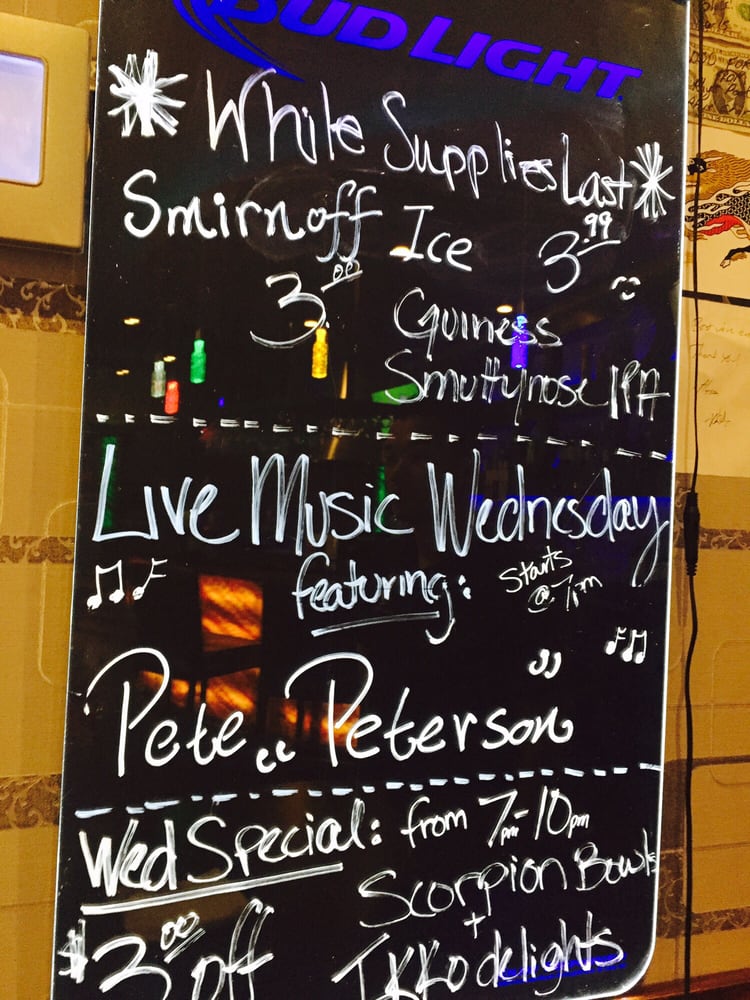 BUD LIGHT
While Supplies Last
Smirnoff Ice 3.99
3.00 Guiness
Smuttynose IPA
Live Music Wednesday
featuring: Starts
@ 7pm
Pete Peterson
Wed Special: from 7pm-10pm
Scorpion Bowls
+
$3.00 off IKKO delights